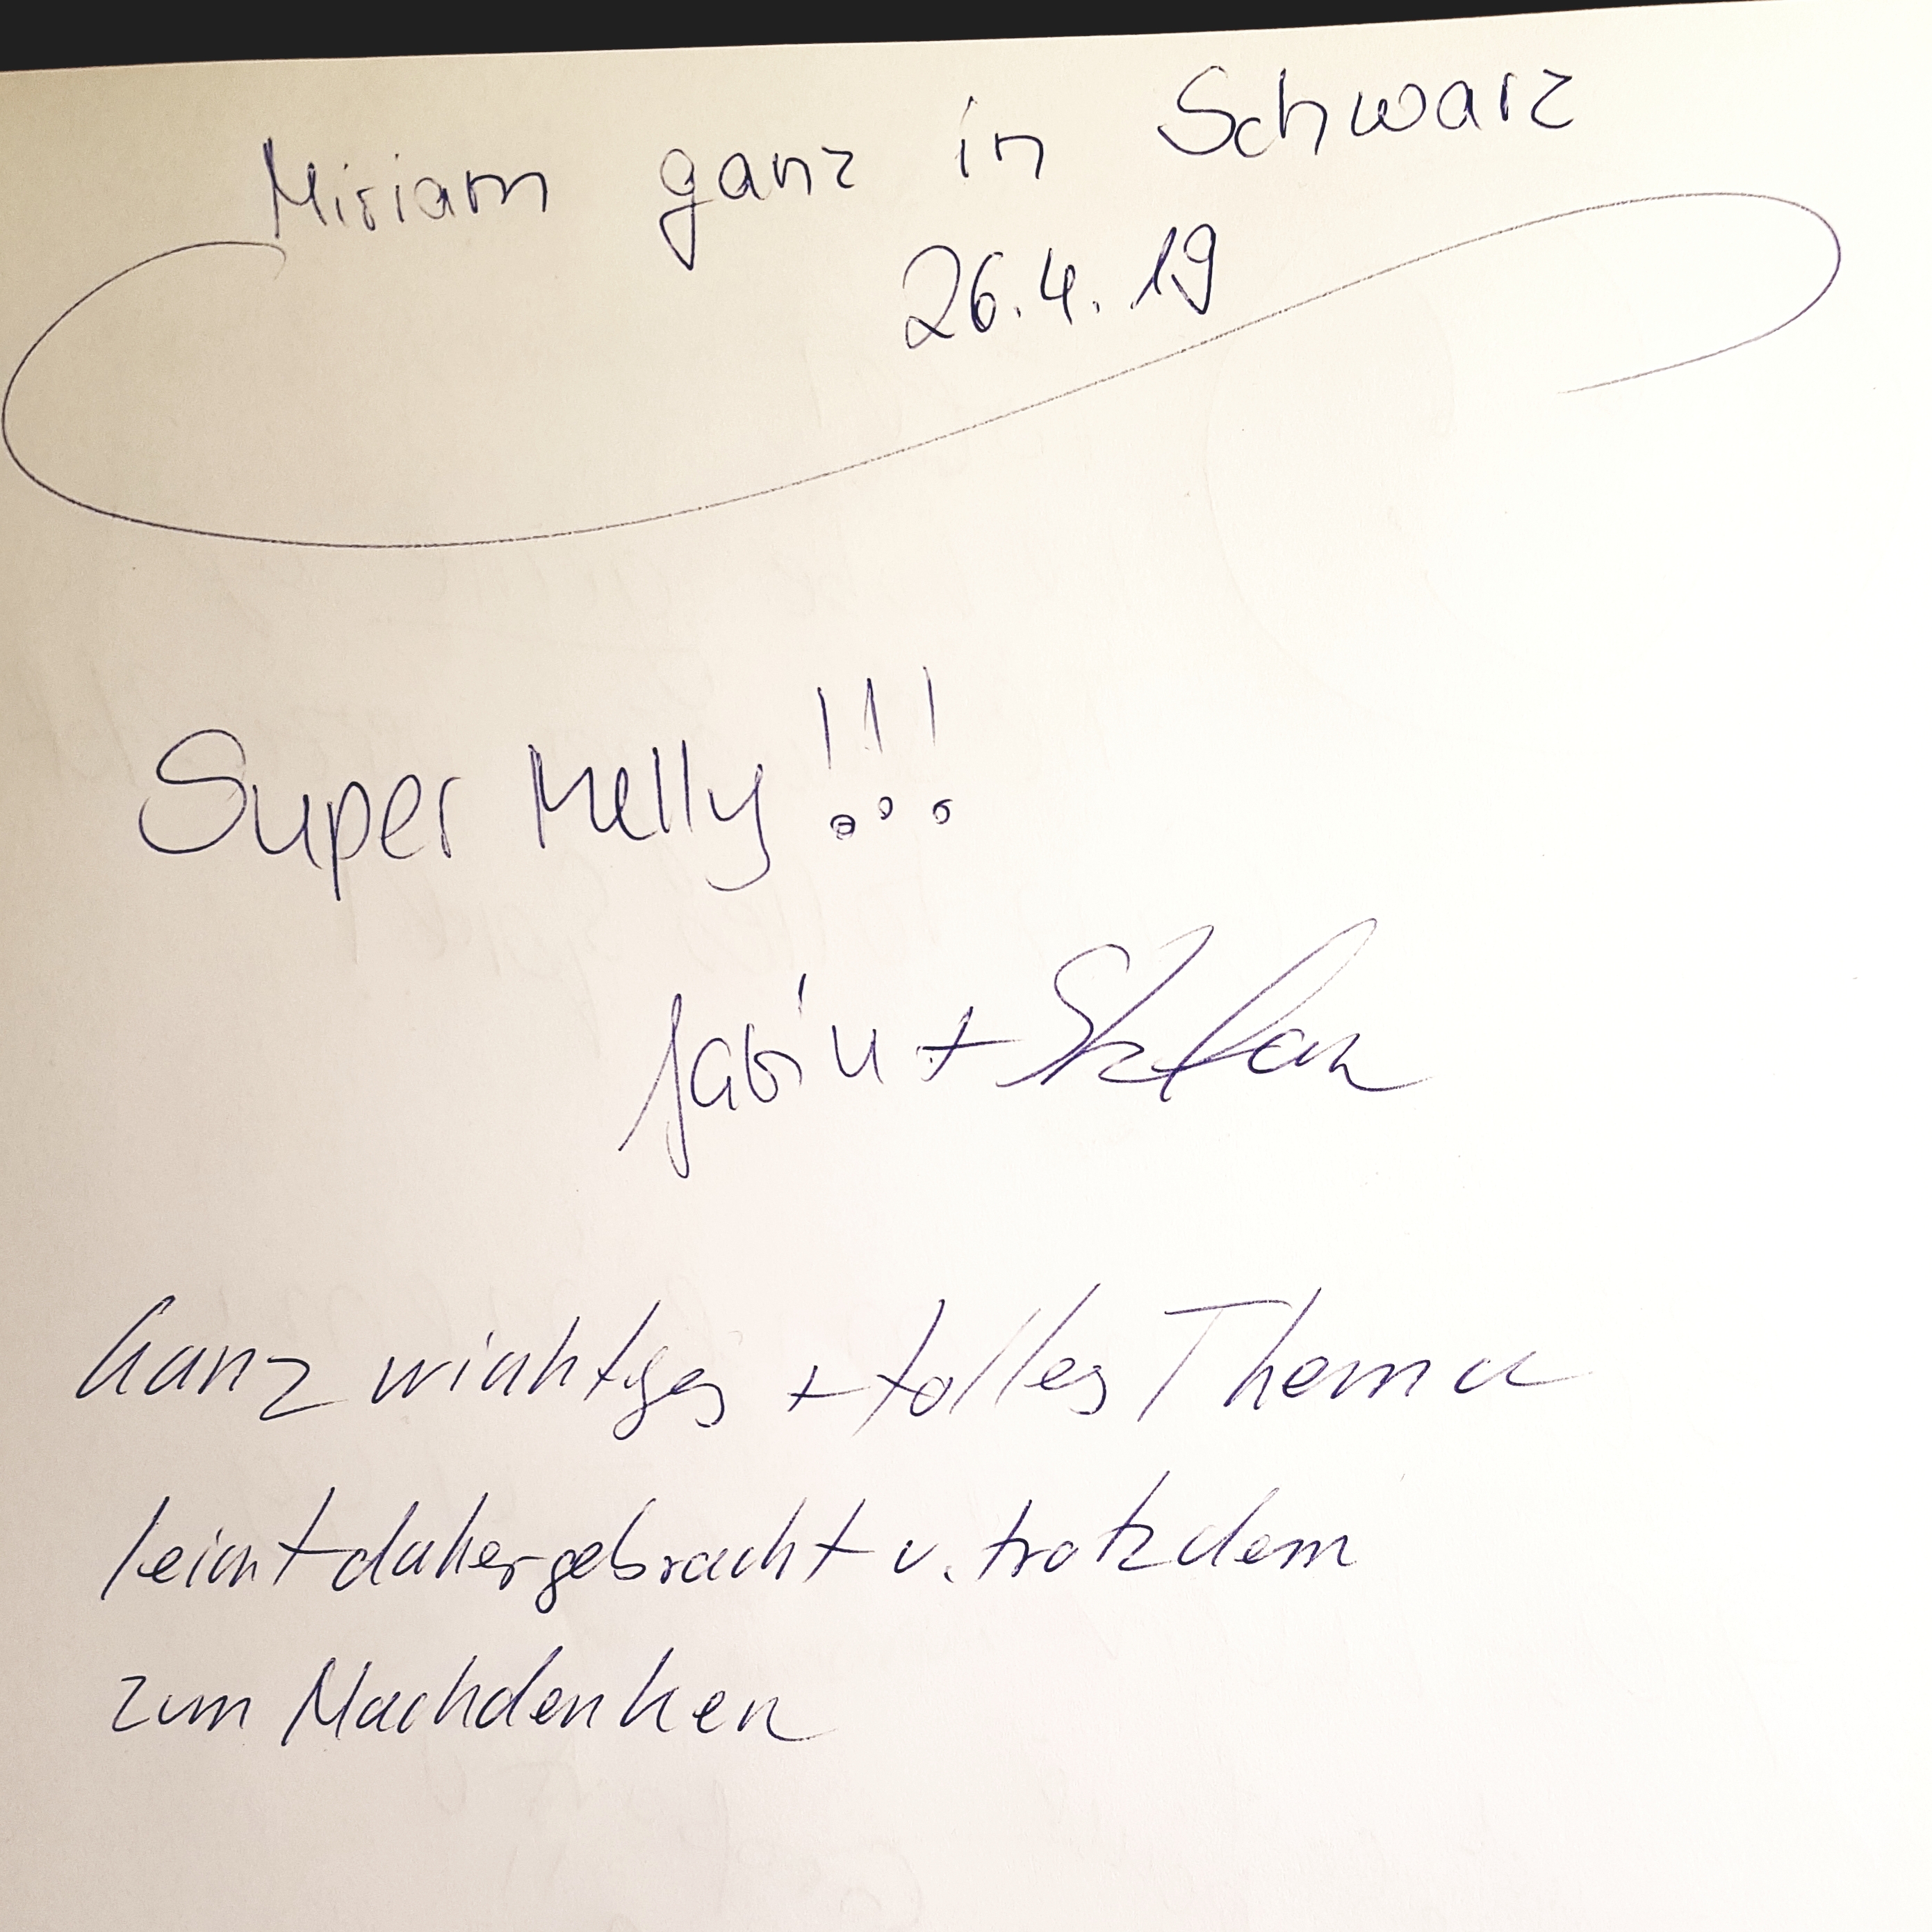 Miriam ganz in Schwarz
26.4.19
Super Melly!!!
+ Stefan
Ganz wichtiges + tolles Thema
leicht dahergebracht u. trotzdem
zum Nachdenken